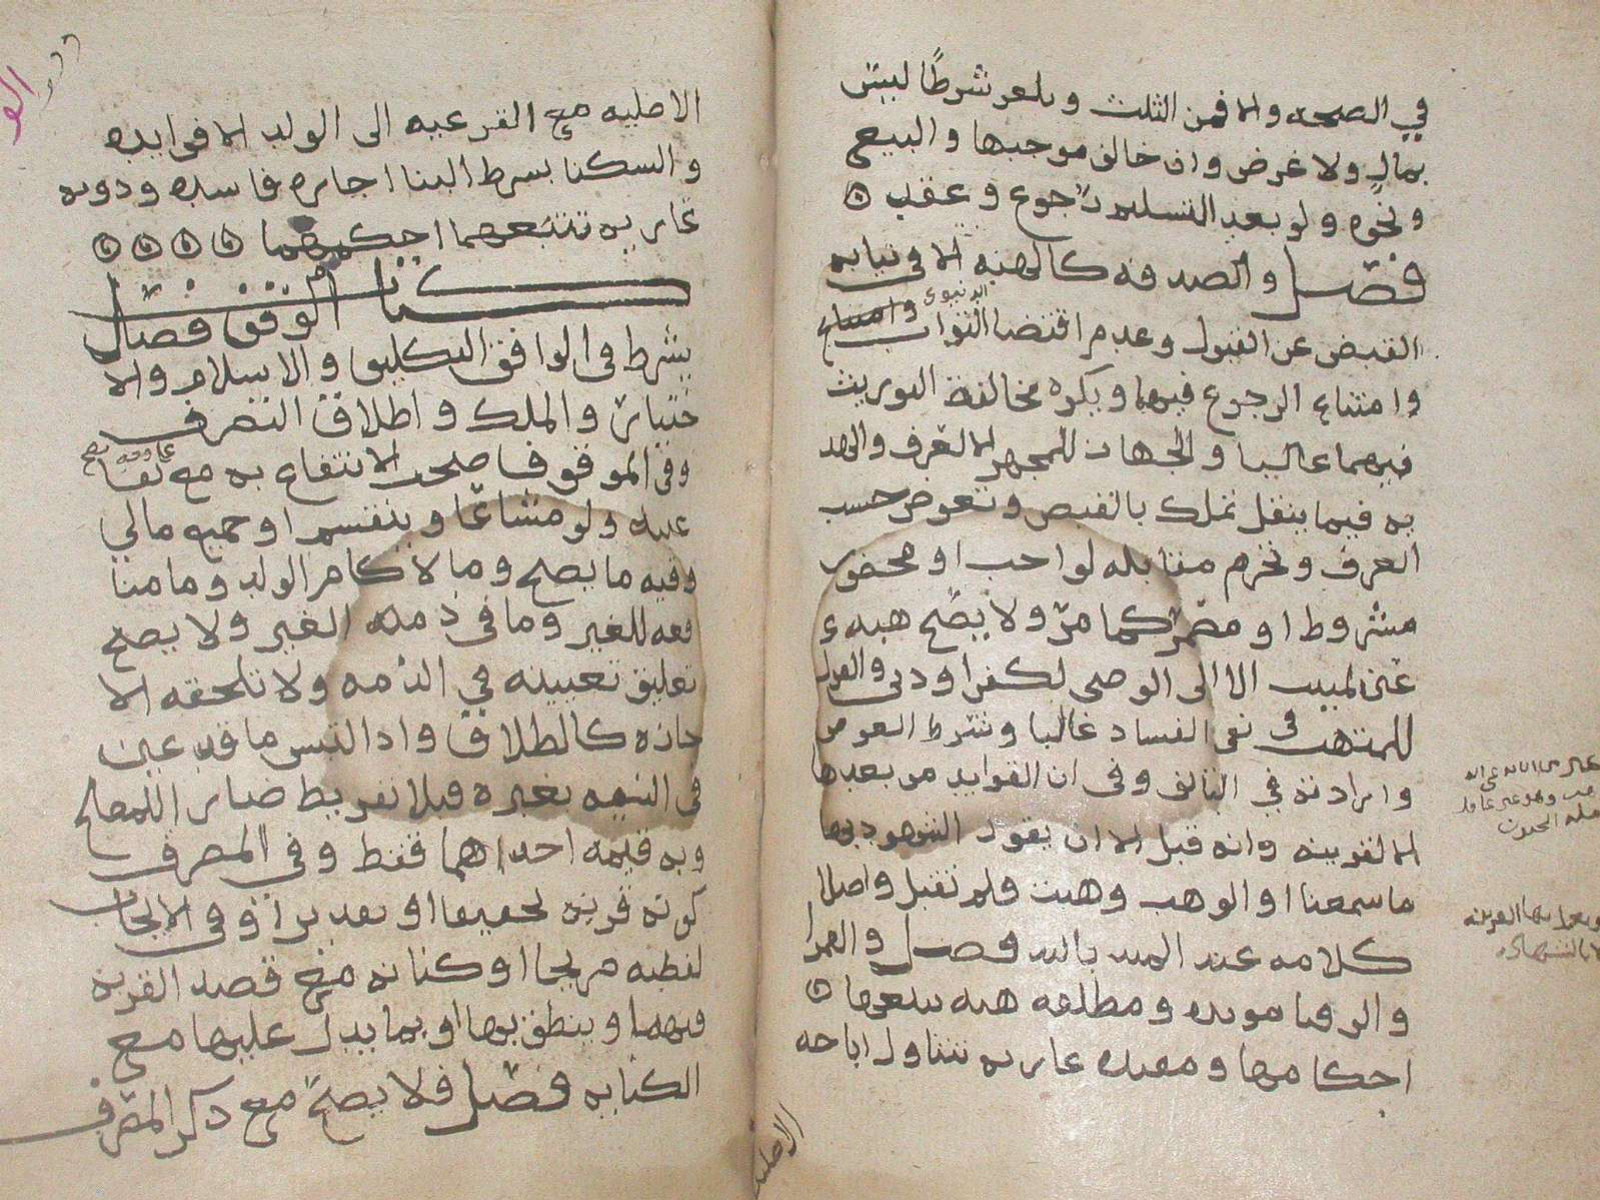 في الصحه والا فمن الثلث ويلغو شرطًا ليس
بمال ولا غرض وان خالف موجبها والبيع
ونحوه ولو بعد التسليم رجوع وعقد ه
فصل والصدقه كالهبه الا في نيابه
القبض عن القبول وعدم اقتضا الثواب
وامتناع الرجوع فيها ويكره مخالفة التوريث
فيهما غالبا والجهاز للمجهز الا لعرف والهد
يه فيما ينقل تملك بالقبض وتعوض حسب
العرف وتحرم مقابله لواجب او محضور
مشروط او مضمر كما مر ولا يصح هبه
عين لميت الا الى الوصي لكفن او دين والقول
للمتهب في نفي الفساد غالبا وشرط العوض
وارادته في التالف وفي ان الفوايد من بعدها
الا لقرينه وانه قبل الا ان يقول الشهود بها
ما سمعنا او الواهب وهبت ولم تقبل واصلا
كلامه عند فصل والعمرا
والرقبا موبده ومطلقه هبه تتبعها ه
احكامها ومقيده عاريه تتناول اباحه
الاصليه
الاصليه مع الفرعيه الى الولد الا فوايده
والسكنا بشرط البنا اجاره فاسده ودونه
عاريه تتبعهما احكامهما ه ه ه ه
كتاب الوقف فصل
يشرط في الواقف التكليف والاسلام والا
ختيار والملك واطلاق التصرف
وفي الموقوف صحت الانتفاع به مع بقا
عينه ولو مشاعًا وينقسم او جميع مالي
وفيه ما يصح وما لا كام الولد وما منا
فعه للغير وما في ذمة الغير ولا يصح
تعليق تعيينه في الذمه ولا تلحقه الا
جازه كالطلاق واذا التبس ما قد عين
في النيه بغيره فبلا تفريط صار للمصالح
وبه قيمه احداهما فقط وفي المصرف
كونه قربه تحقيقا او تقديرًا وفي الايجاب
لفظه صريحا او كنايه مع قصد القربه
فيهما وينطق بها او بما يدل عليها مع
الكنايه فصل فلا يصح مع ذكر المصرف